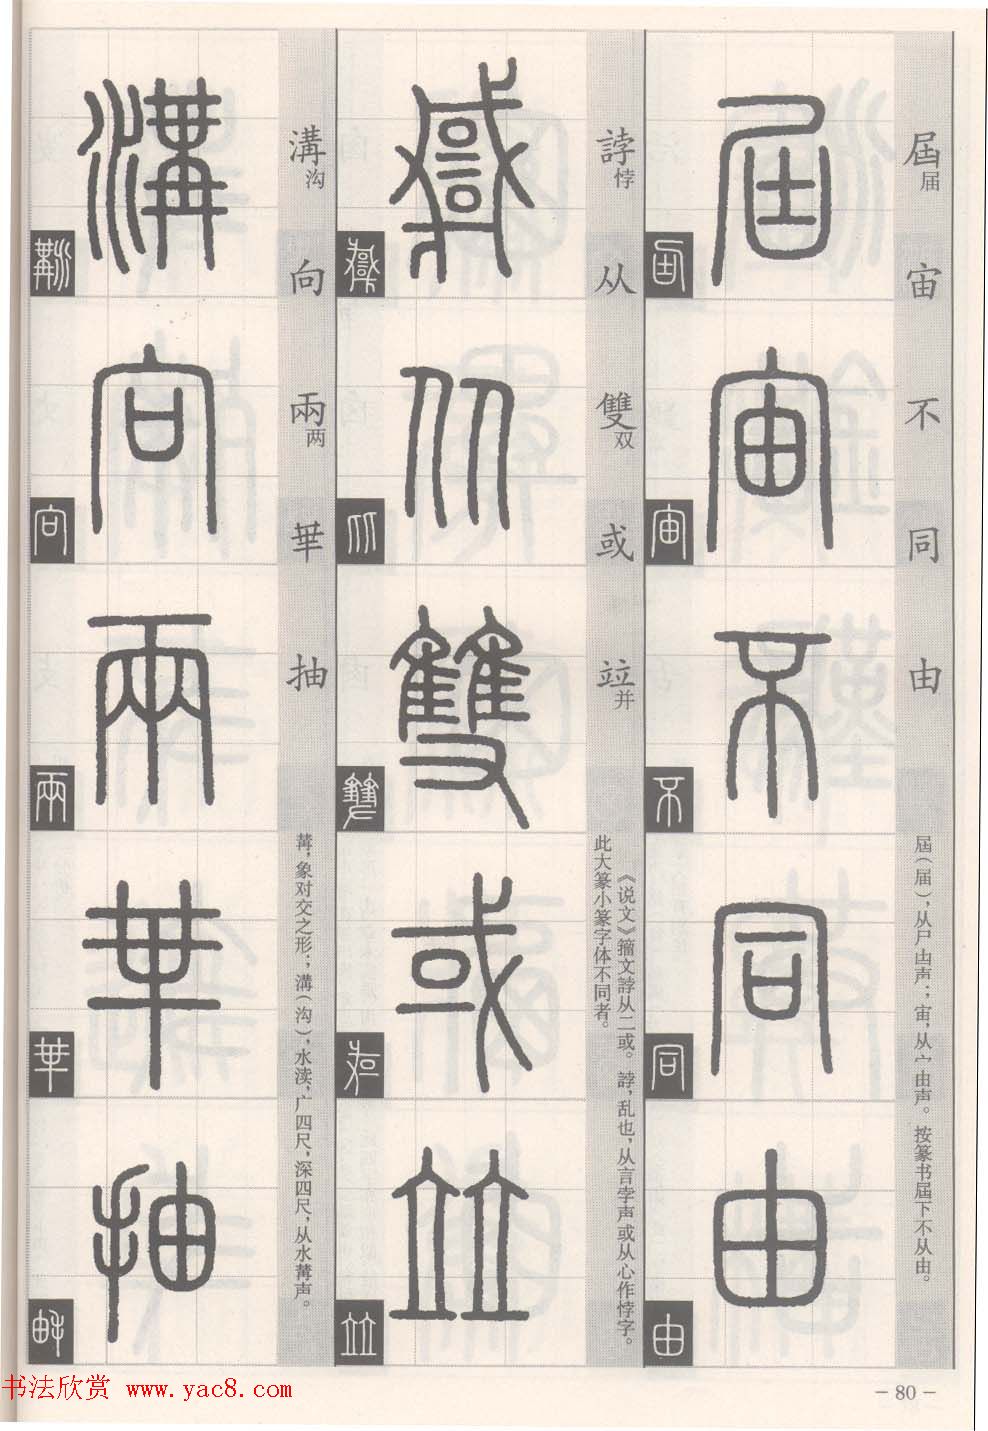 屆届宙不同由
屆（届），从尸凷声；宙，从宀由声。按篆书屆下不从由。
誖悖从雙双或竝并
《说文》籀文誖从二或。誖，乱也，从言孛声或从心作悖字。
此大篆小篆字体不同者。
溝沟向兩两華抽
冓，象对交之形；溝（沟），水渎，广四尺，深四尺，从水冓声。
- 80 -
书法欣赏 www.yac8.com